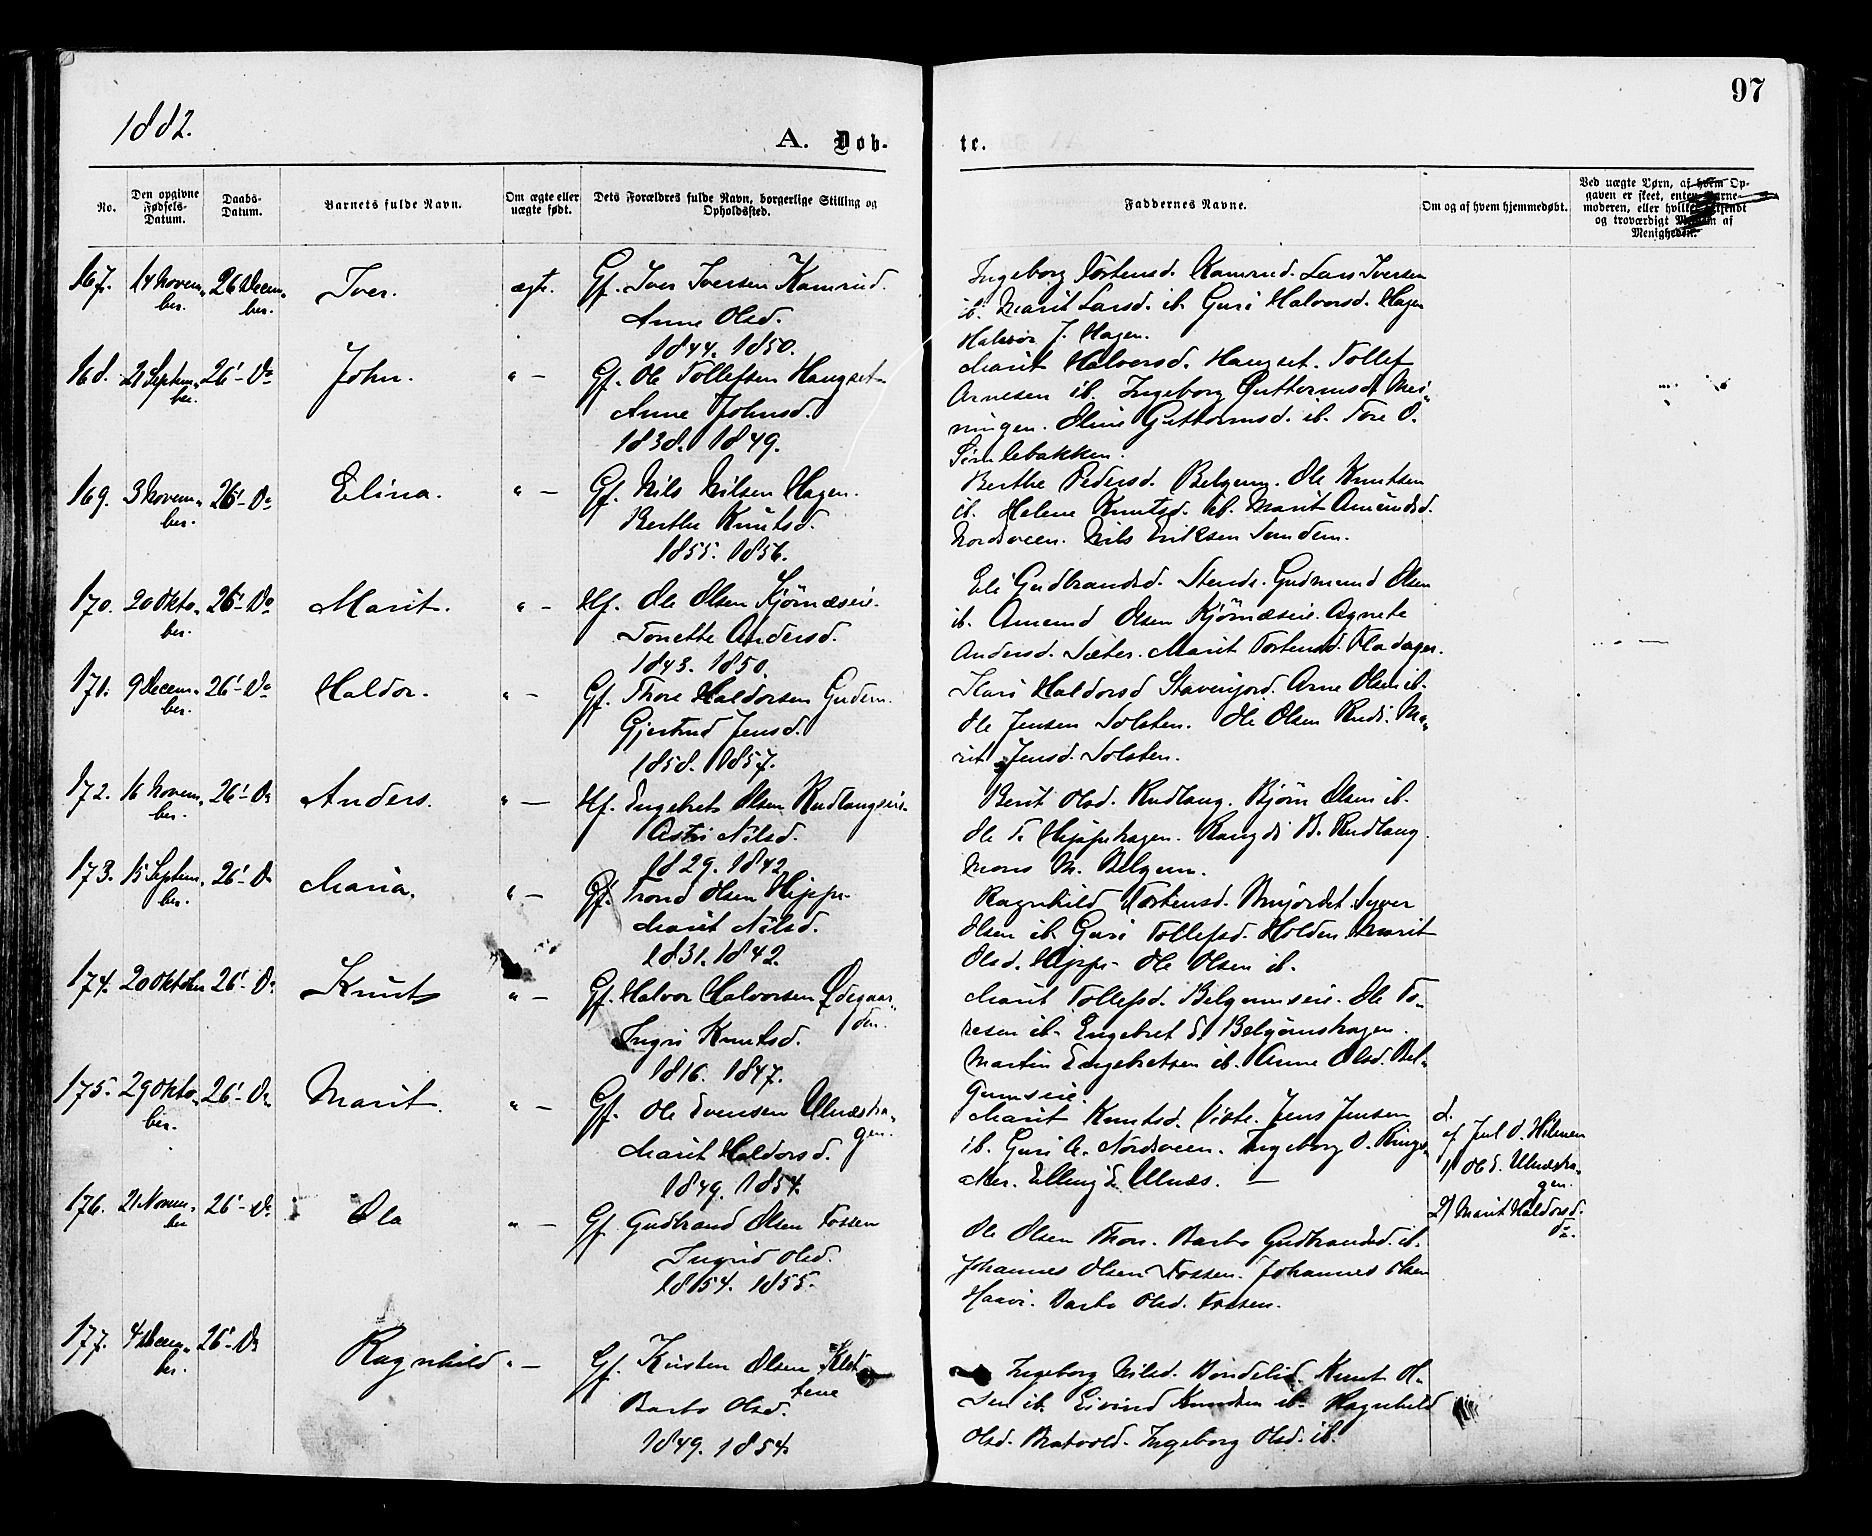 97
1882.
A. Døb-
te.
No.
Den opgivne Fødsels-Datum.
Daabs-Datum.
Barnets fulde Navn.
Om ægte eller uægte født.
Dets Forældres fulde Navn, borgerlige Stilling og Opholdssted.
Faddernes Navne.
Om og af hvem hjemmedøbt.
Ved uægte Børn, af hvem Op-
gaven er skeet, enten Barne-
moderen, eller hvilket
og troværdigt af
Menigheden.
167. 14 Novem- 26 Decem- Iver. ægte. Gf. Iver Iversen Kamrud.
ber. ber. Anne Olsd.
1844. 1850.
Ingeborg Torstensd. Kamrud. Lars Iversen
ib. Marit Larsd. ib. Guri Halvorsd. Hagen
Halvor J. Hagen.
168. 21 Septem- 26' - Do John. " - Gf. Ole Tollefsen Haugset
ber. Anne Johnsd.
1838. 1849.
Marit Halvorsd. Haugset. Tollef
Arnesen ib. Ingeborg Guttormsd. Mei-
ningen. Guttormsd. ib. Tore O.
169. 3 Novem- 26' - Do Elina. " - Gf. Nils Nilsen Hagen.
ber. Berthe Knutsd.
1855. 1856.
Berthe Pedersd. Belgum. Ole Knutsen
ib. Helene Knutsd. ib. Marit Amundsd.
Nordsveen. Nils Eriksen Sundem.
170. 20 Okto- 26' - Do Marit. " - Hf. Ole Olsen Kjørnæseie.
ber. Tonette Andersd.
1843. 1850.
Eli Gudbrandsd. Stende. Gudmund Olsen
ib. Amund Olsen Kjørnæseie. Agnete
Andersd. Sæter. Marit Torstensd. Fladager.
171. 9 Decem- 26' - Do Haldor. " - Gf. Thore Haldorsen Gudem.
ber. Gjertrud Jensd.
1858. 1857.
Kari Haldorsd Arne Olsen ib.
Ole Jensen Solsten. Ole Olsen Rudi. Ma-
rit Jensd. Solsten.
172. 16 Novem- 26' - Do Anders. " - Hf. Engebret Olsen Rudlangseie.
ber. Astri Nilsd.
1829. 1842.
Berit Olsd. Rudlang. Bjørn Olsen ib.
Ole T. Hippehagen. Rangdi B. Rudlang.
Mons M. Belgum.
173. 15 Septem- 26' - Do Maria. " - Gf. Trond Olsen Hippe.
ber. Marit Nilsd.
1831. 1842.
Ragnhild Torstensd. Syver
Olsen ib. Guri Tollefsd. Holden Marit
Olsd. Hippe - Ole Olsen ib.
174. 20 Oktober 26' - Do Knut " - Gf. Halvor Halvorsen Ødegaar-
den.
Ingri Knutsd.
1816. 1847.
Marit Tollefsd. Belgumseie. Ole To-
resen ib. Engebret Belgumshagen.
Martin Engebretsen ib. Anne Olsd. Bel-
gumseie.
175. 29 Okto- 26' - Do Marit. " - Gf. Ole Evensen Ulnæsha-
ber. gen.
Marit Haldorsd.
1849. 1854.
Marit Knutsd. Jens Jensen
ib. Guri A. Nordsveen. Ingeborg O. Ringe-
Elling E. Ulnæs. -
d.
af Juul O. Hilmen
1) Ole E. Ulnæsha-
gen.
2) Marit Haldorsd.
do.
176. 21 Novem- 26' - Do Ola " - Gf. Gudbrand Olsen Fossen
ber Ingrid Olsd.
1854. 1855.
Ole Olsen Thon. Barbo Gudbrandsd. ib.
Johannes Olsen Fossen. Johannes Olsen
Haavi. Barbo Olsd. Fossen.
177. 4 Decem- 26' - Do Ragnhild " - Gf. Kristen Olsen
ber. Barbo Olsd.
1849. 1854.
Ingeborg Nilsd. Bøndelid. Knut Ol-
sen ib. Eivind Knudsen ib. Ragnhild
Olsd. Bratvold. Ingeborg Olsd. ib.